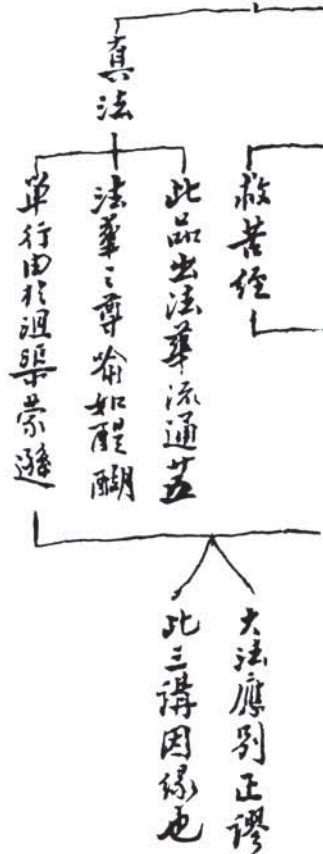 救苦经
真法
此品出法華流通益
法華之尊喻如醍醐
單行由於沮渠蒙遜
大法應別正謬
此三講因缘也